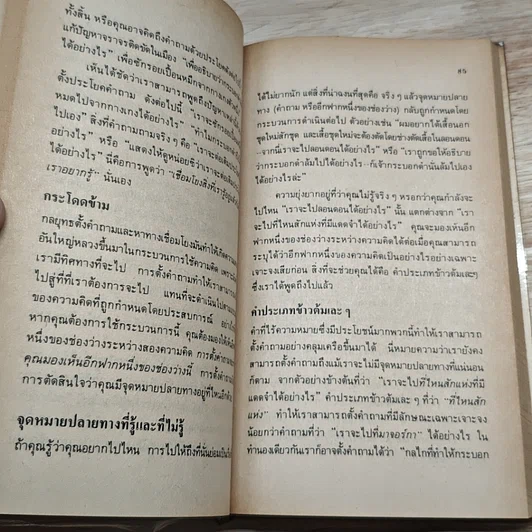 ทั้งสิ้น หรือคุณอาจคิดถึงคำถามด้วยประโยคต่อไปนี้
แก้ปัญหาจราจรติดขัดในเมือง "เพื่ออธิบายว่ากระบอก
ได้อย่างไร" "เพื่อซักรอยเปื้อนหมึกจากกางเกงตัวนี้
เห็นได้ชัดว่าเราสามารถพูดถึงปัญหา
ตั้งประโยคคำถาม ดังต่อไปนี้ "เราจะซักรอยเปื้อน
หมดไปจากกางเกงได้อย่างไร" "ทำไมกระบอก
ไปเอง" สิ่งที่คำถามถามจริง ๆ คือ "เราจะต่อ
อย่างไร" หรือ "แสดงให้ดูหน่อยซิว่าเราจะต่อ
ได้อย่างไร" นี่คือการพูดว่า "เชื่อมโยงสิ่งที่เรารู้อยู่แล้ว
เราอยากรู้" นั่นเอง
กระโดดข้าม
กลยุทธตั้งคำถามและหาทางเชื่อมโยงมันทำให้เกิดความ
อันใหญ่หลวงขึ้นมาในกระบวนการใช้ความคิด เพราะ
เรามีทิศทางที่จะไป การตั้งคำถามทำให้เราสามารถ
ไปสู่ที่ที่เราต้องการจะไป แทนที่จะดำเนินไปตาม
ของความคิดที่ถูกกำหนดโดยประสบการณ์ อย่างไร
หากคุณต้องการใช้กระบวนการนี้ คุณต้องมองให้เห็น
หนึ่งของช่องว่างระหว่างสองความคิด การตั้งคำถาม
คุณมองเห็นอีกฟากหนึ่งของช่องว่างนี้ การตั้งคำถาม
การตัดสินใจว่าคุณมีจุดหมายปลายทางอยู่ที่ไหนสัก
จุดหมายปลายทางที่รู้และที่ไม่รู้
ถ้าคุณรู้ว่าคุณอยากไปไหน การไปให้ถึงที่นั่นย่อมเป็น
๙๖
ได้ไม่ยากนัก แต่สิ่งที่น่าฉงนที่สุดคือ จริง ๆ แล้วจุดหมายปลาย
ทาง (คำถาม หรืออีกฟากหนึ่งของช่องว่าง) กลับถูกกำหนดโดย
กระบวนการดำเนินต่อไป ตัวอย่างเช่น "ผมอยากได้เสื้อนอก
ชุดใหม่สักชุด และเสื้อชุดใหม่จะต้องตัดโดยช่างตัดเสื้อในลอนดอน
—จากนี้เราจะไปลอนดอนได้อย่างไร" หรือ "เราถูกขอให้อธิบาย
ว่ากระบอกดำล้มไปได้อย่างไร —ก็เจ้ากระบอกดำนั่นล้มไปเอง
ได้อย่างไรล่ะ"
ความยุ่งยากอยู่ที่ว่าคุณไม่รู้จริง ๆ หรอกว่าคุณกำลังจะ
ไปไหน "เราจะไปลอนดอนได้อย่างไร" นั้น แตกต่างจาก "เราจะ
ไปที่ไหนสักแห่งที่มีแดดจัดได้อย่างไร" คุณจะมองเห็นอีก
ฟากหนึ่งของช่องว่างระหว่างความคิดได้ต่อเมื่อคุณสามารถ
ระบุได้ว่าอีกฟากหนึ่งของความคิดเป็นอย่างไรอย่างเฉพาะ
เจาะจงเสียก่อน สิ่งที่จะช่วยคุณได้คือ คำประเภทข้าวต้มเละๆ
ซึ่งเราได้พูดถึงไปแล้ว
คำประเภทข้าวต้มเละ ๆ
คำที่ไร้ความหมายซึ่งมีประโยชน์มากพวกนี้ทำให้เราสามารถ
ตั้งคำถามอย่างคลุมเครือขึ้นมาได้ นี่หมายความว่าเรายังคง
สามารถตั้งคำถามถึงแม้ว่าเราจะไม่มีจุดหมายปลายทางที่แน่นอน
ก็ตาม จากตัวอย่างข้างต้นที่ว่า "เราจะไปที่ไหนสักแห่งที่มี
แดดจัดได้อย่างไร" คำประเภทข้าวต้มเละๆ ที่ว่า "ที่ไหนสัก
แห่ง" ทำให้เราสามารถตั้งคำถามที่มีลักษณะเฉพาะเจาะจง
น้อยกว่าคำถามที่ว่า "เราจะไปที่มาจอร์กา" ได้อย่างไร ใน
ทำนองเดียวกันเราก็อาจตั้งคำถามได้ว่า "กลไกที่ทำให้กระบอก